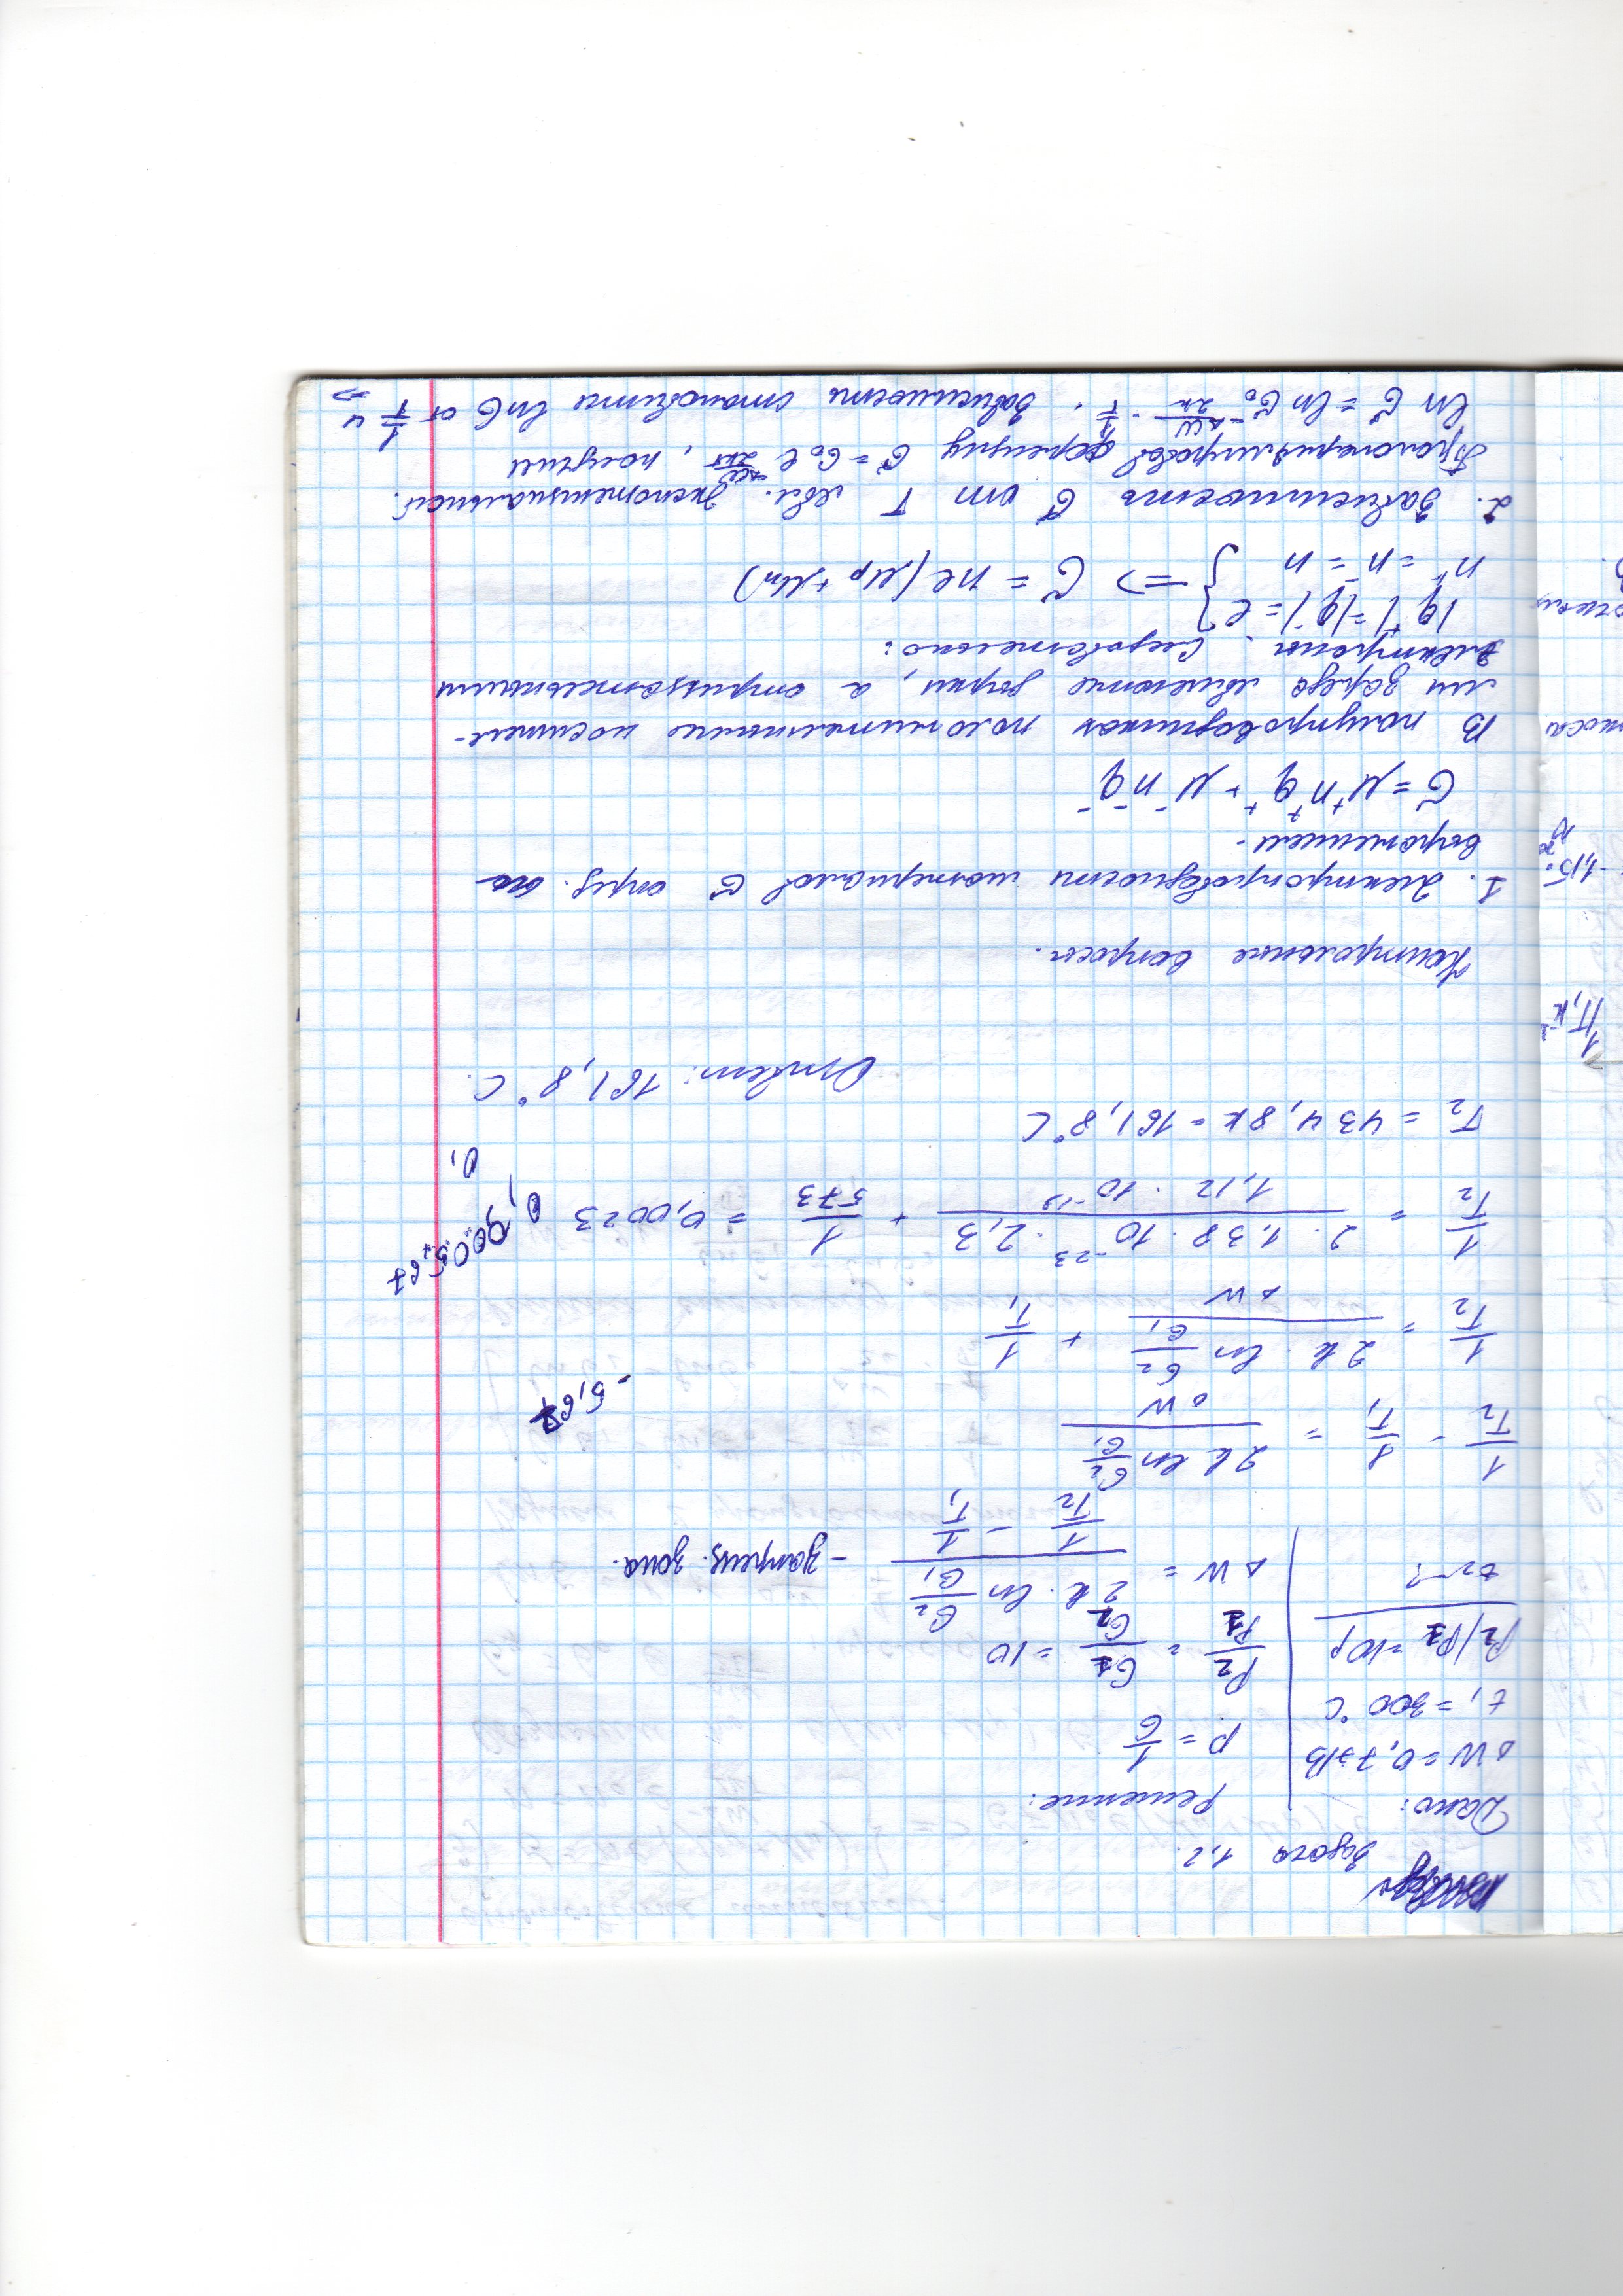 Задача 1,2.
Дано:
ΔW = 0,7эВ
t₁ = 300 °C
ρ₂/ρ₁ = 10ρ
t₂ - ?
Решение:
ρ = 1/σ
ρ₂/ρ₁ = σ₁/σ₂ = 10
ΔW = (2k · ln σ₂/σ₁) / (1/T₂ - 1/T₁) - запрещ. зона.
1/T₂ - 1/T₁ = (2k ln σ₂/σ₁) / ΔW
- 5,67
1/T₂ = (2k · ln σ₂/σ₁) / ΔW + 1/T₁
1/T₂ = (2 · 1,38 · 10⁻²³ · 2,3) / (1,12 · 10⁻¹⁹) + 1/573 = 0,0023
0,
T₂ = 434,8К = 161,8°C
Ответ: 161,8°C.
Контрольные вопросы.
1. Электропроводности материалов σ опред.
выражением-
σ = μ⁺n⁺q⁺ + μ⁻n⁻q⁻
В полупроводниках положительными носителя-
ми заряда являются дырки, а отрицательными
электроны. Следовательно:
|q⁺| = |q⁻| = e
n⁺ = n⁻ = n } => σ = ne(μp + μn)
2. Зависимость σ от T явл. экспотенциальной.
Прологарифмировав формулу σ = σ₀e^(-ΔW/2kT), получим
ln σ = ln σ₀ - ΔW/2k · 1/T. Зависимость становится ln σ от 1/T и =>
1/T, K⁻¹
-1,15·